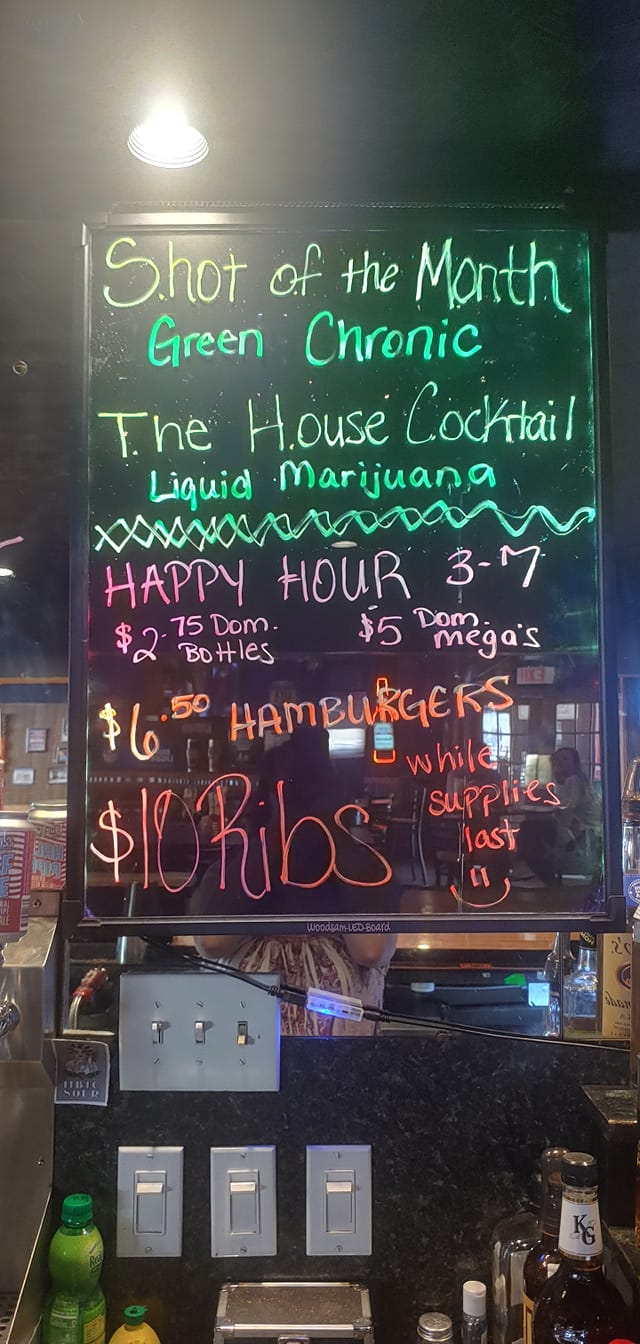 Shot of the Month
Green Chronic
The House Cocktail
Liquid Marijuana
HAPPY HOUR 3-7
$2.75 Dom. Bottles
$5 Dom. mega's
$6.50 HAMBURGERS
$10 Ribs
while
supplies
last
Woodsam-LED-Board
KG